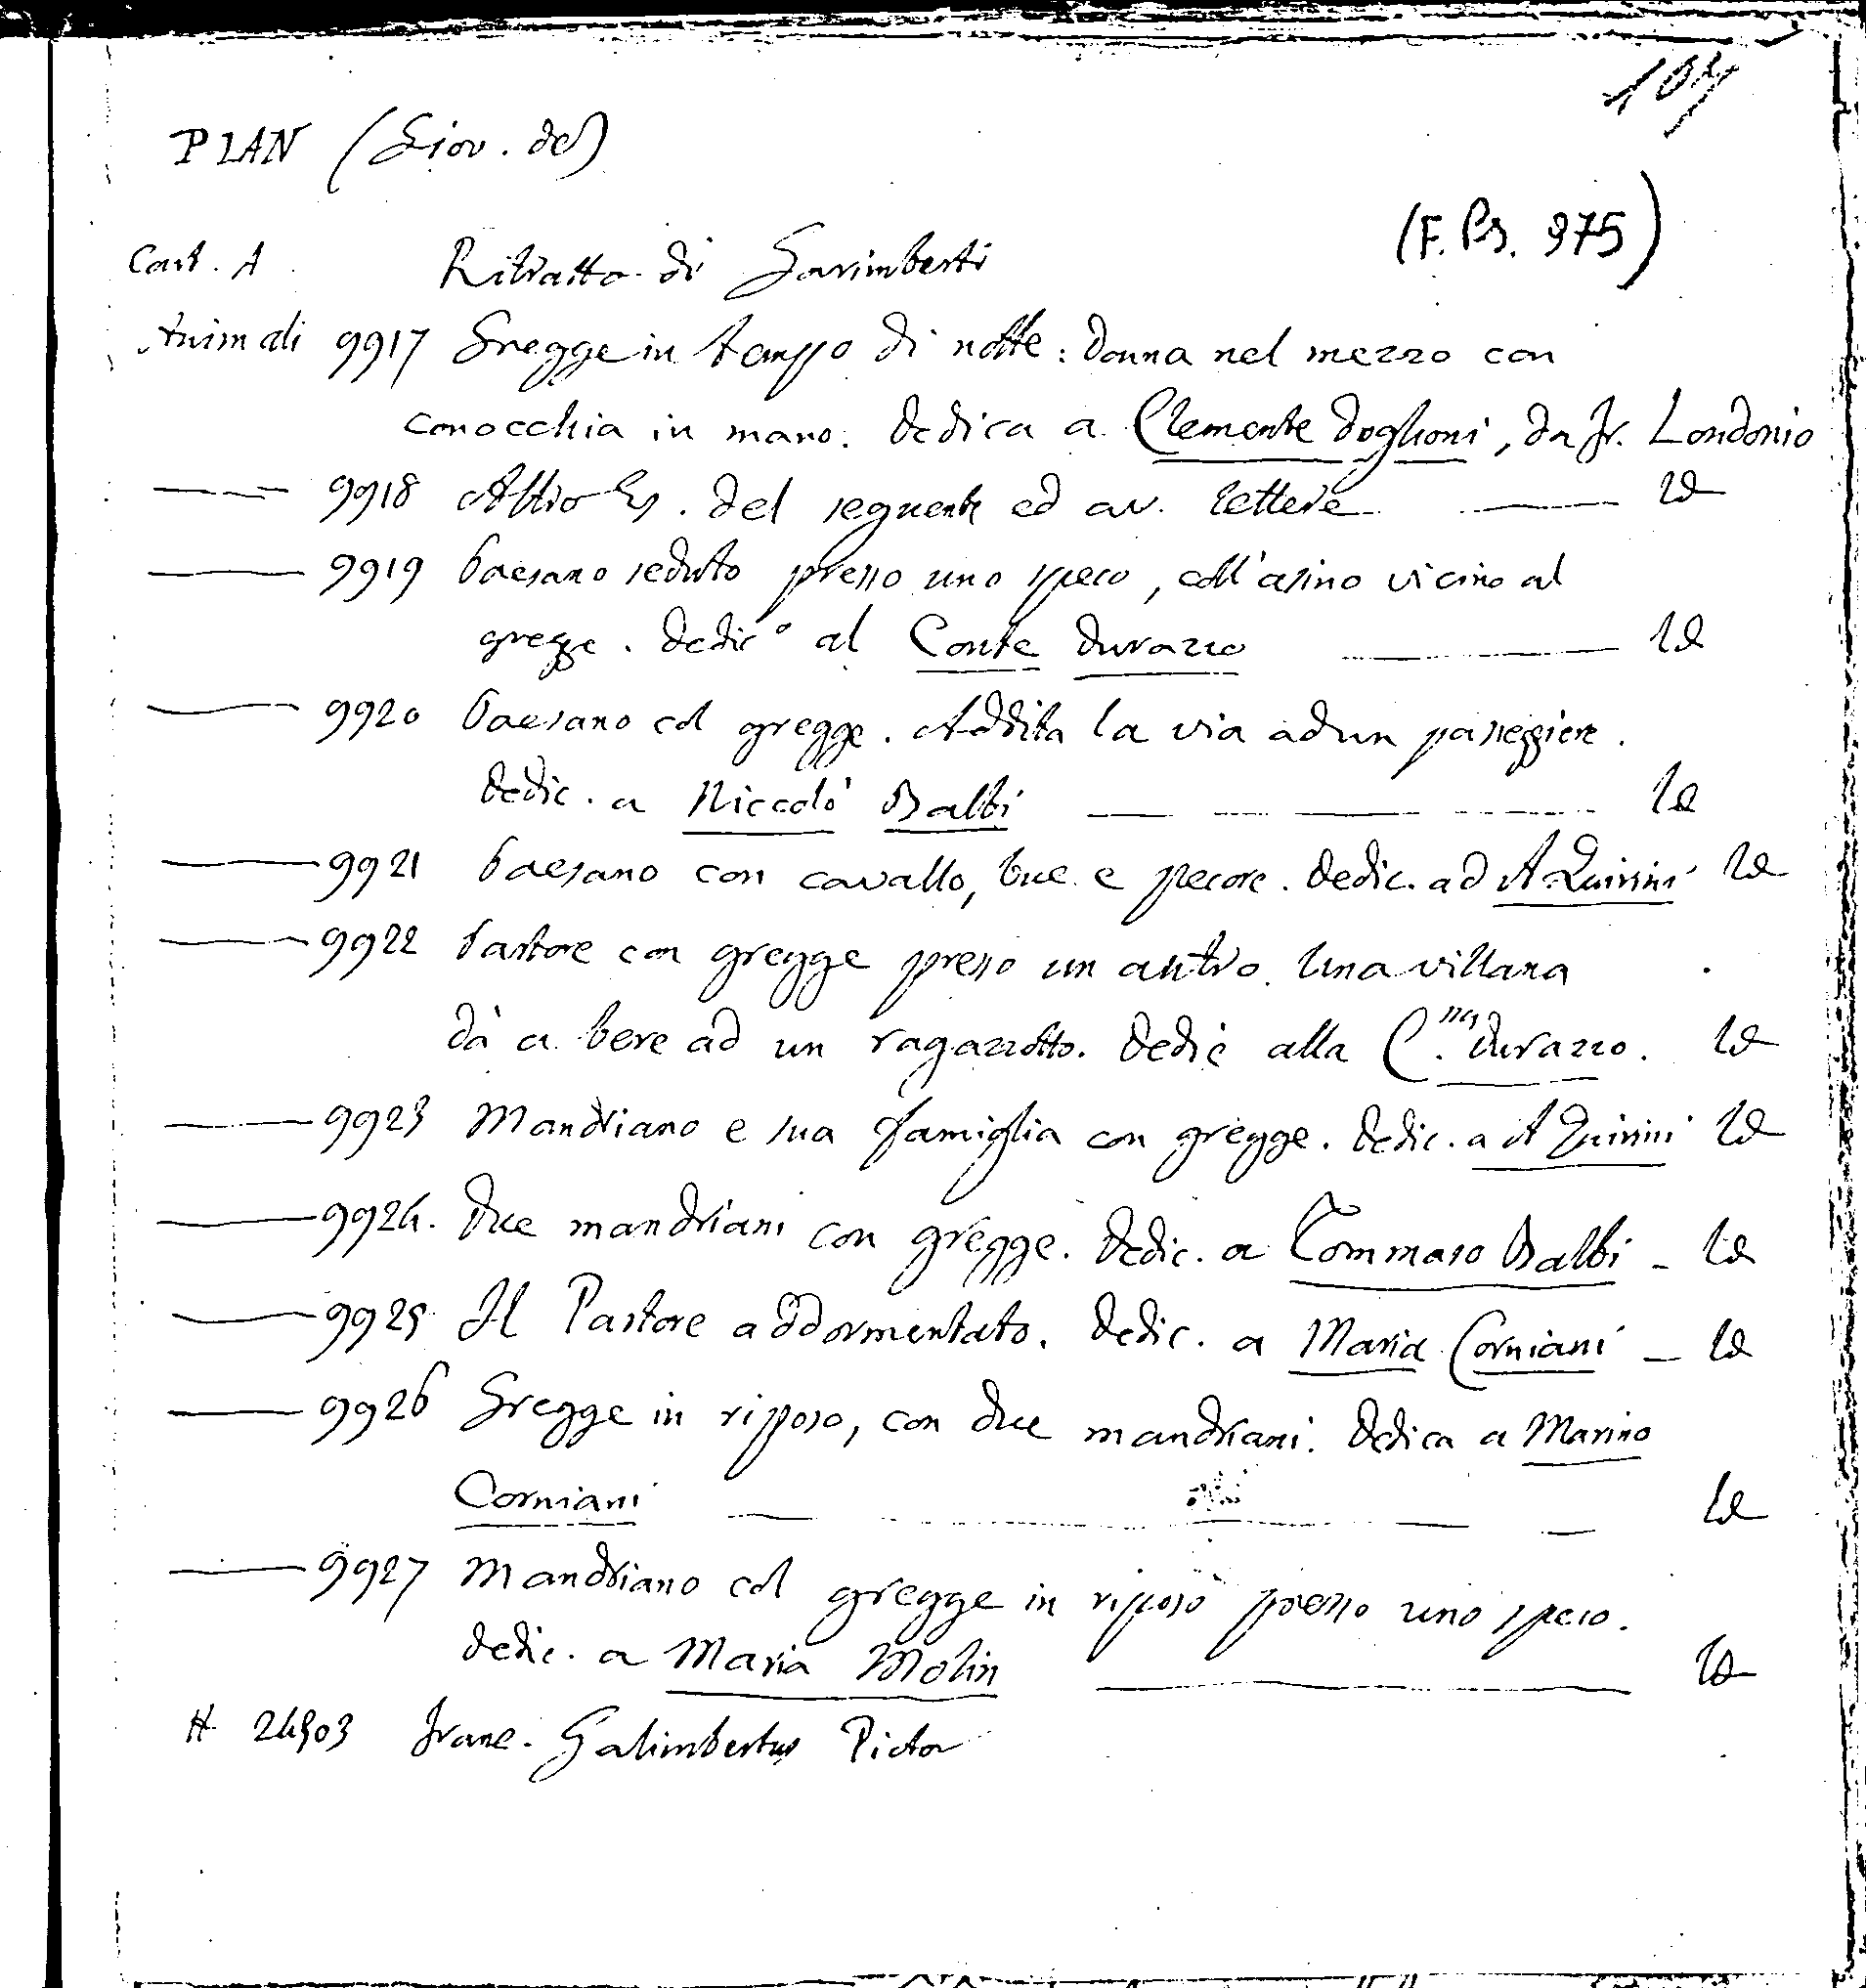 104
PLAN (Giov. de)
(F. Ps. 975)
Cart. A Ritratto di Garimberti
Animali 9917 Gregge in tempo di notte: donna nel mezzo con
conocchia in mano. Dedica a Clemente Doglioni, da Fr. Londonio
9918 Altro Es. del seguente ed av. lettere Id
9919 Paesano seduto presso uno speco, coll'asino vicino al
gregge. Dedic° al Conte Durazzo Id
9920 Paesano col gregge. Addita la via ad un passeggiere.
Dedic. a Niccolò Balbi Id
9921 Paesano con cavallo, bue e pecore. Dedic. ad A Quirini Id
9922 Pastore con gregge presso un antro. Una villana
dà a bere ad un ragazzotto. Dedic alla C.na Durazzo. Id
9923 Mandriano e sua famiglia con gregge. Dedic. a A Quirini Id
9924. Due mandriani con gregge. Dedic. a Tommaso Balbi - Id
9925 Il Pastore addormentato. Dedic. a Maria Corniani - Id
9926 Gregge in riposo, con due mandriani. Dedica a Marino
Corniani Id
9927 Mandriano col gregge in riposo presso uno speco.
Dedic. a Maria Molin Id
A 24903 Franc. Galimbertus Pictor